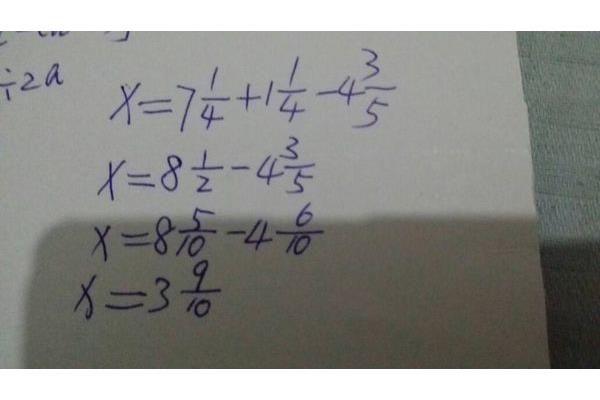 ÷2a
x=7 1/4+1 1/4-4 3/5
x=8 1/2-4 3/5
x=8 5/10-4 6/10
x=3 9/10